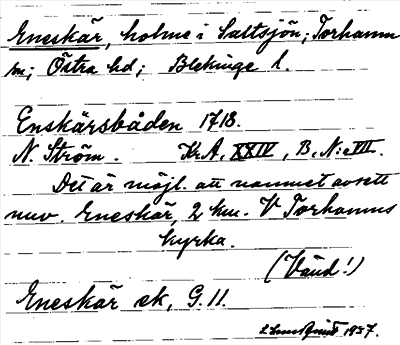 Eneskär, holme i Saltsjön; Torhamn
sn; Östra hd; Blekinge l.
Enskärsbåden 1718.
N. Ström. Kr.A, XXIV, B, N:o VII.
Det är möjl. att namnet avsett
nuv. Eneskär, 2 km. V Torhamns
kyrka.
(Vänd!)
Eneskär ek, G. 11.
1957.